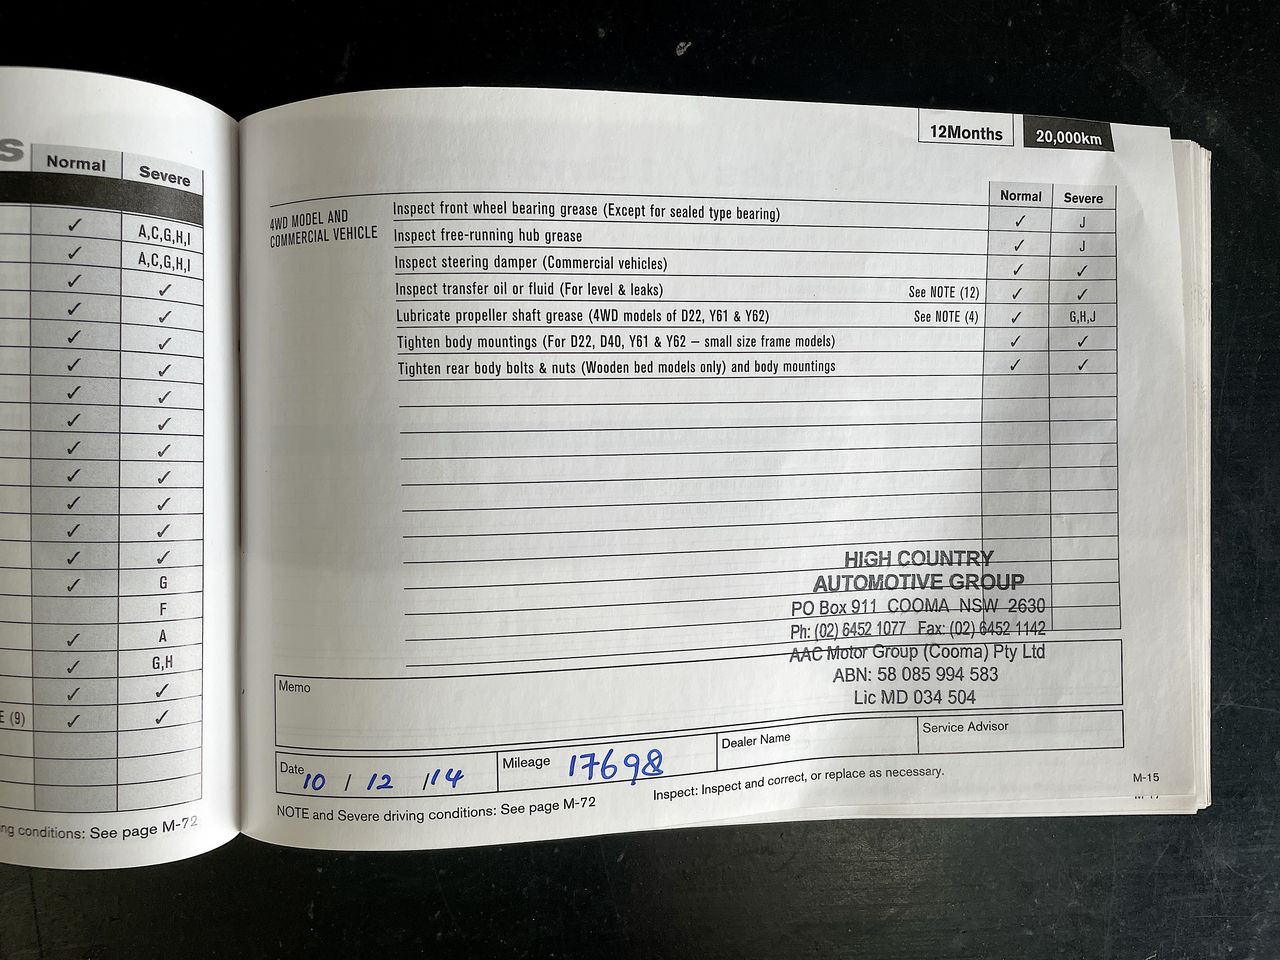 S
Normal Severe
✓ A,C,G,H,I
✓ A,C,G,H,I
✓ ✓
✓ ✓
✓ ✓
✓ ✓
✓ ✓
✓ ✓
✓ ✓
✓ ✓
✓ ✓
✓ ✓
✓ ✓
✓ G
F
✓ A
✓ G,H
✓ ✓
E (9) ✓ ✓
ng conditions: See page M-72
12Months 20,000km
Normal Severe
4WD MODEL AND
COMMERCIAL VEHICLE
Inspect front wheel bearing grease (Except for sealed type bearing) ✓ J
Inspect free-running hub grease ✓ J
Inspect steering damper (Commercial vehicles) ✓ ✓
Inspect transfer oil or fluid (For level & leaks) See NOTE (12) ✓ ✓
Lubricate propeller shaft grease (4WD models of D22, Y61 & Y62) See NOTE (4) ✓ G,H,J
Tighten body mountings (For D22, D40, Y61 & Y62 – small size frame models) ✓ ✓
Tighten rear body bolts & nuts (Wooden bed models only) and body mountings ✓ ✓
HIGH COUNTRY
AUTOMOTIVE GROUP
PO Box 911 COOMA NSW 2630
Ph: (02) 6452 1077 Fax: (02) 6452 1142
AAC Motor Group (Cooma) Pty Ltd
ABN: 58 085 994 583
Lic MD 034 504
Memo
Date 10 / 12 / 14 Mileage 17698 Dealer Name Service Advisor
NOTE and Severe driving conditions: See page M-72 Inspect: Inspect and correct, or replace as necessary.
M-15